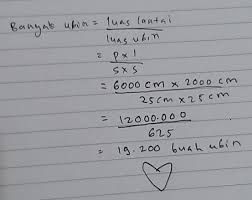 Banyak ubin = luas lantai
luas ubin
= p x l
s x s
= 6000 cm x 2000 cm
25 cm x 25 cm
= 12000.000
625
= 19.200 buah ubin